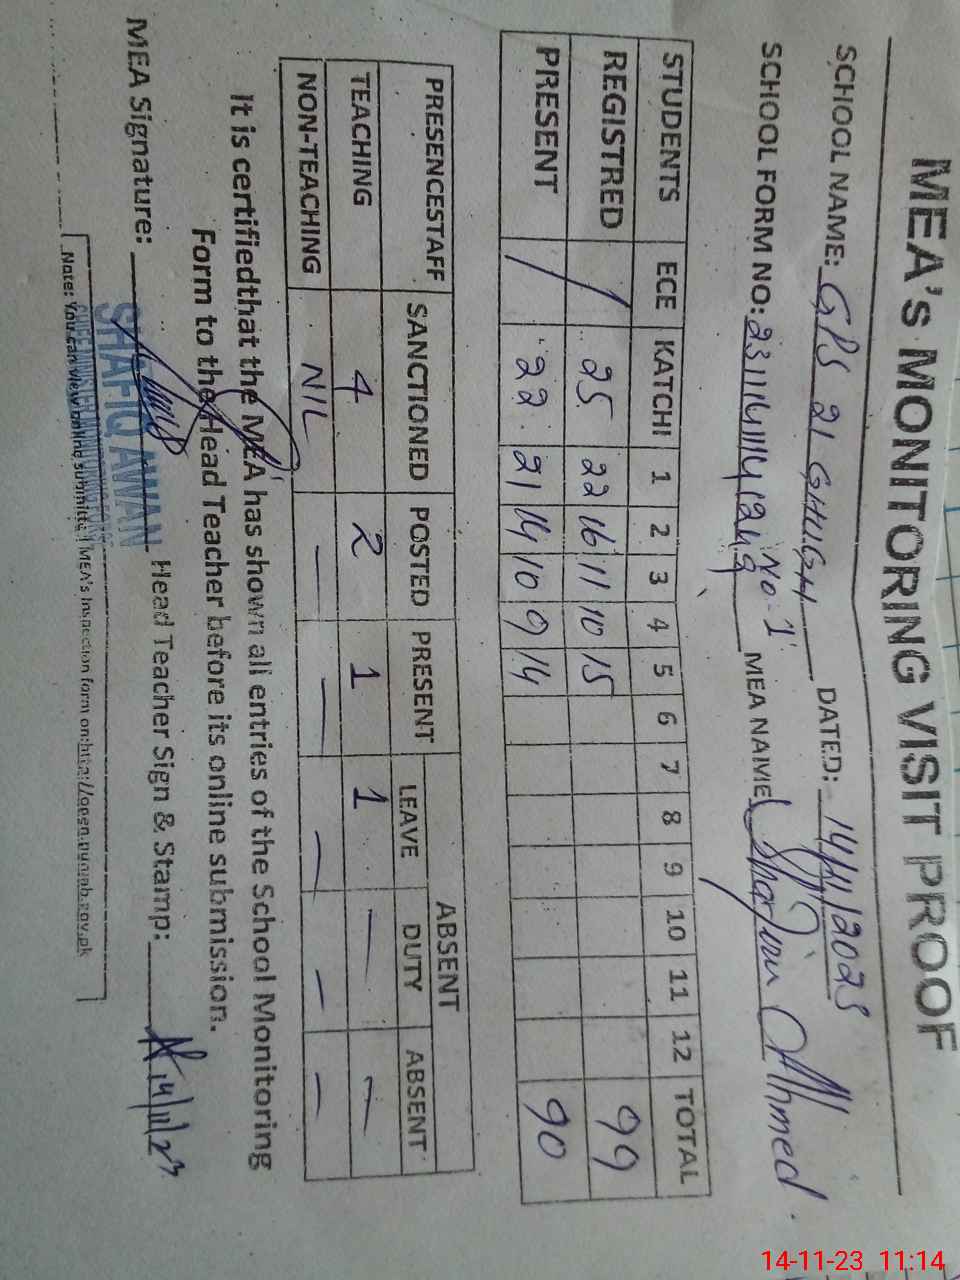 MEA's MONITORING VISIT PROOF
SCHOOL NAME: GPS 21 GHUGH No-1 DATED: 14/11/2023
SCHOOL FORM NO: MEA NAME Ahmed
STUDENTS ECE KATCHI 1 2 3 4 5 6 7 8 9 10 11 12 TOTAL
REGISTRED / 25 22 16 11 10 15 99
PRESENT / 22 21 14 10 9 14 90
PRESENCESTAFF SANCTIONED POSTED PRESENT ABSENT
LEAVE DUTY ABSENT
TEACHING 4 2 1 1 — —
NON-TEACHING NIL — — — — —
It is certifiedthat the MEA has shown all entries of the School Monitoring
Form to the Head Teacher before its online submission.
MEA Signature: Head Teacher Sign & Stamp: 14/11/23
SHAFIQ AWAN
CHIEF MINISTER MONITORING FORCE
Note: You can view online submitted MEA's Inspection form on:http://open.punjab.gov.pk
14-11-23 11:14